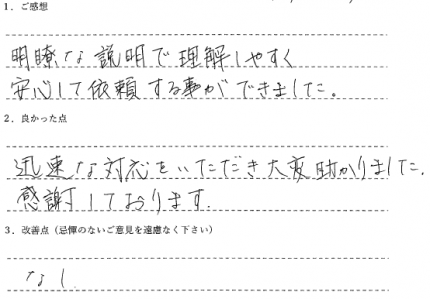 1. ご感想
明瞭な説明で理解しやすく
安心して依頼する事ができました。
2. 良かった点
迅速な対応をいただき大変助かりました.
感謝しております.
3. 改善点（忌憚のないご意見を遠慮なく下さい）
なし.